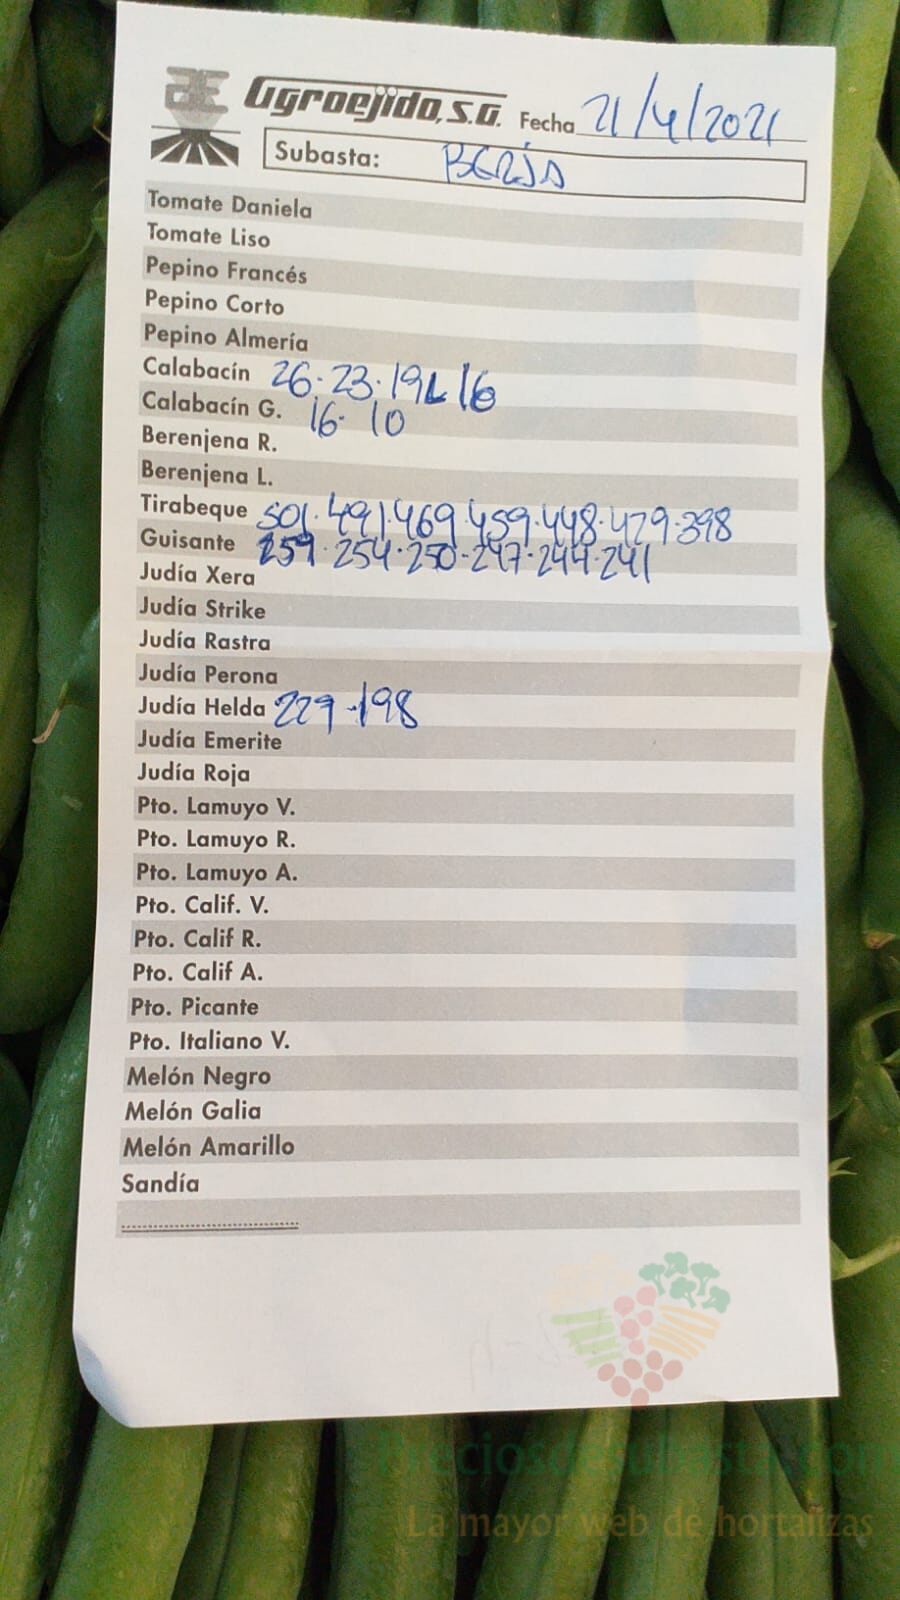 Agroejido, S.A. Fecha 21/4/2021
Subasta: BERJA
Tomate Daniela
Tomate Liso
Pepino Francés
Pepino Corto
Pepino Almería
Calabacín 26.23.19L 16
Calabacín G. 16. 10
Berenjena R.
Berenjena L.
Tirabeque 501.491.469.459.448.429.398
Guisante 259.254.250-247.244.241
Judía Xera
Judía Strike
Judía Rastra
Judía Perona
Judía Helda 229.198
Judía Emerite
Judía Roja
Pto. Lamuyo V.
Pto. Lamuyo R.
Pto. Lamuyo A.
Pto. Calif. V.
Pto. Calif R.
Pto. Calif A.
Pto. Picante
Pto. Italiano V.
Melón Negro
Melón Galia
Melón Amarillo
Sandía
Preciosdesubasta.com
La mayor web de hortalizas